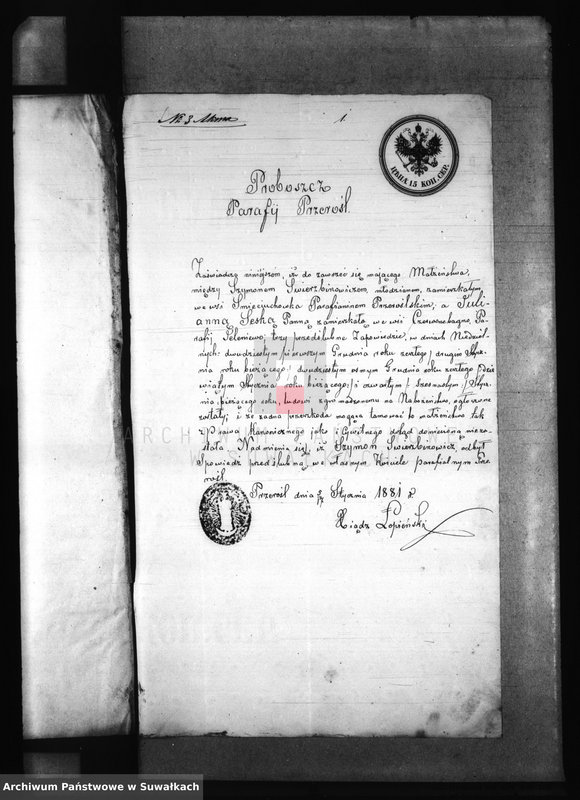 № 3 Akt 1
ЦѢНА 15 КОП. СЕР.
Proboszcz
Parafij Przerośl.
Zaświadcza niniejszem, iż do zawrzeć się mającego Małżeństwa,
między Szymonem Świerzbinowiczem, młodzianem, zamieszkałym,
we wsi Śmieciuchowka Parafianinem Przeroślskim, a Juli-
anną Seską Panną zamieszkałą we wsi Czerwone bagno, Pa-
rafij Jeleniewo, trzy przedślubne Zapowiedzie, w dniach Niedziel-
nych: dwudziestym pierwszym Grudnia roku zeszłego / drugim Stycz-
nia roku bieżącego / dwudziestym osmym Grudnia roku zeszłego / dzie-
wiątym Stycznia roku bieżącego / i czwartym / szesnastym / Stycz-
nia bieżącego roku, ludowi zgromadzonemu na Nabożeństwo, ogłoszone
zostały; i że żadna przeszkoda mogąca tamować to małżeństwo tak
z Prawa Kanonicznego jako i Cywilnego dotąd doniesioną niezo-
stała. Nadmienia się, iż Szymon Świerzbinowicz, odbył
Spowiedź przedślubną we własnym Kościele parafialnym Prze-
rośl.
Przerośl dnia Stycznia 1881 r.
Ksiądz Łopieński
ARCHIWUM PAŃSTWOWE
W SUWAŁKACH
Archiwum Państwowe w Suwałkach